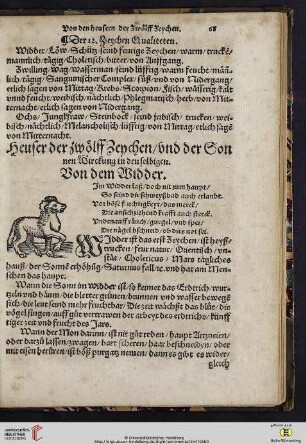 Von den heusern der zwölff Zeychen. 68
¶ Der 12. Zeychen Qualiteten.
Widder/ Löw/ Schütz/ seind feurige Zeychen/ warm/ trucke/
mannlich/ tägig/ Cholerisch/ bitter/ von Auffgang.
Zwilling/ Wag/ Wasserman/ seind lüfftig/ warm/ feucht/ män-
lich/ tägig/ Sanguinischer Complex/ süß/ vnd von Nidergang/
etlich sagen von Mittag/ Krebs/ Scorpion/ Fisch/ wässerig/ kalt
vnnd feucht/ weibisch/ nächtlich/ Phlegmatisch/ herb/ von Mit-
ternacht/ etlich sagen von Nidergang.
Ochs/ Jungkfraw/ Steinbock/ seind jrdisch/ trucken/ wei-
bisch/ nächtlich/ Melancholisch/ von Mittag/ etlich sagē
von Mitternacht.
Heuser der zwölff Zeychen/ vnd der Son
nen Wirckung in denselbigen.
Von dem Widder.
Im Widder laß/ doch nit zum haupt/
So seind die schweyßbad auch erlaubt.
das merck/
Die krafft auch sterck.
gurgel/ vnd
Die nägel bschneid/ ob dirs not sei.
Widder ist das erst Zeychen/ ist heyß/
trucken/ feuriger natur/ Orientisch/ vn-
stät/ Cholericus/ Mars tägliches
hauß/ der Sonnē erhöhūg/ Saturnus fall/ ꝛc. vnd hat am Men-
schen das haupt.
Wann die Sonn im Widder ist/ so keimet das Erdtrich/ wur-
tzeln vnd bäum/ die bletter grünen/ brunnen vnd wasser bewegē
sich/ die leut seind mehr fruchtbar/ Die zeit wächst das blůt/ die
vögel singen/ auff gůt vertrawen der arbeyt des erdtrichs/ künff
tiger zeit vnd frucht des Jars.
Wann der Mon darinnen ist/ ist nit gůt reden/ haupt Artzneien/
oder darzů lassen/ zwagen/ bart scheren/ haar beschneiden/ oder
mit eisen berüren/ ist böß purgatz nemen/ dann es gibt es wider/
gleich
© Universitätsbibliothek Heidelberg